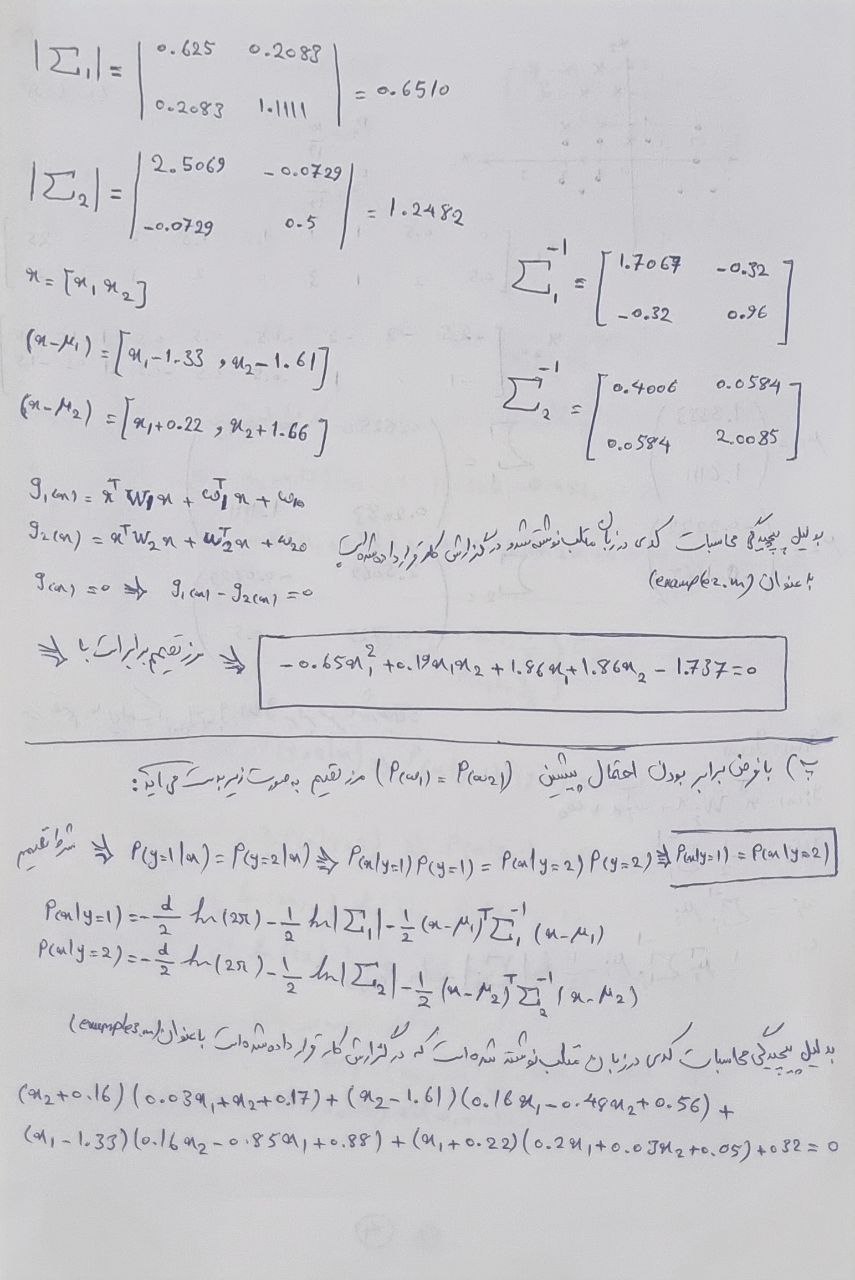 |Σ₁| = | 0.625 0.2083 |
| 0.2083 1.1111 | = 0.6510
|Σ₂| = | 2.5069 -0.0729 |
| -0.0729 0.5 | = 1.2482
Σ₁⁻¹ = [ 1.7067 -0.32 ]
[ -0.32 0.96 ]
x = [x₁ x₂]
(x-μ₁) = [x₁-1.33 , x₂-1.61]
Σ₂⁻¹ = [ 0.4006 0.0584 ]
[ 0.0584 2.0085 ]
(x-μ₂) = [x₁+0.22 , x₂+1.66]
g₁(x) = xᵀW₁x + ω₁ᵀx + ω₁₀
g₂(x) = xᵀW₂x + ω₂ᵀx + ω₂₀
بدلیل پیچیدگی محاسبات کدی در زبان متلب نوشته شد و در گزارش کار قرار داده شده است
با عنوان (example2.m)
g(x) = 0 ⇒ g₁(x) - g₂(x) = 0
⇒ مرز تقسیم برابر است با ⇒ -0.65x₁² + 0.19x₁x₂ + 1.86x₁ + 1.86x₂ - 1.737 = 0
پ) با فرض برابر بودن احتمال پیشین (P(ω₁) = P(ω₂)) مرز تقسیم به صورت زیر بدست می آید:
شرط تقسیم ⇒ P(y=1|x) = P(y=2|x) ⇒ P(x|y=1) P(y=1) = P(x|y=2) P(y=2) ⇒ P(x|y=1) = P(x|y=2)
P(x|y=1) = -d/2 ln(2π) - 1/2 ln|Σ₁| - 1/2 (x-μ₁)ᵀ Σ₁⁻¹ (x-μ₁)
P(x|y=2) = -d/2 ln(2π) - 1/2 ln|Σ₂| - 1/2 (x-μ₂)ᵀ Σ₂⁻¹ (x-μ₂)
بدلیل پیچیدگی محاسبات کدی در زبان متلب نوشته شده است که در گزارش کار قرار داده شده است با عنوان (example3.m)
(x₂+0.16)(0.03x₁+x₂+0.17) + (x₂-1.61)(0.16x₁-0.48x₂+0.56) +
(x₁-1.33)(0.16x₂-0.85x₁+0.88) + (x₁+0.22)(0.2x₁+0.03x₂+0.05) + 0.32 = 0